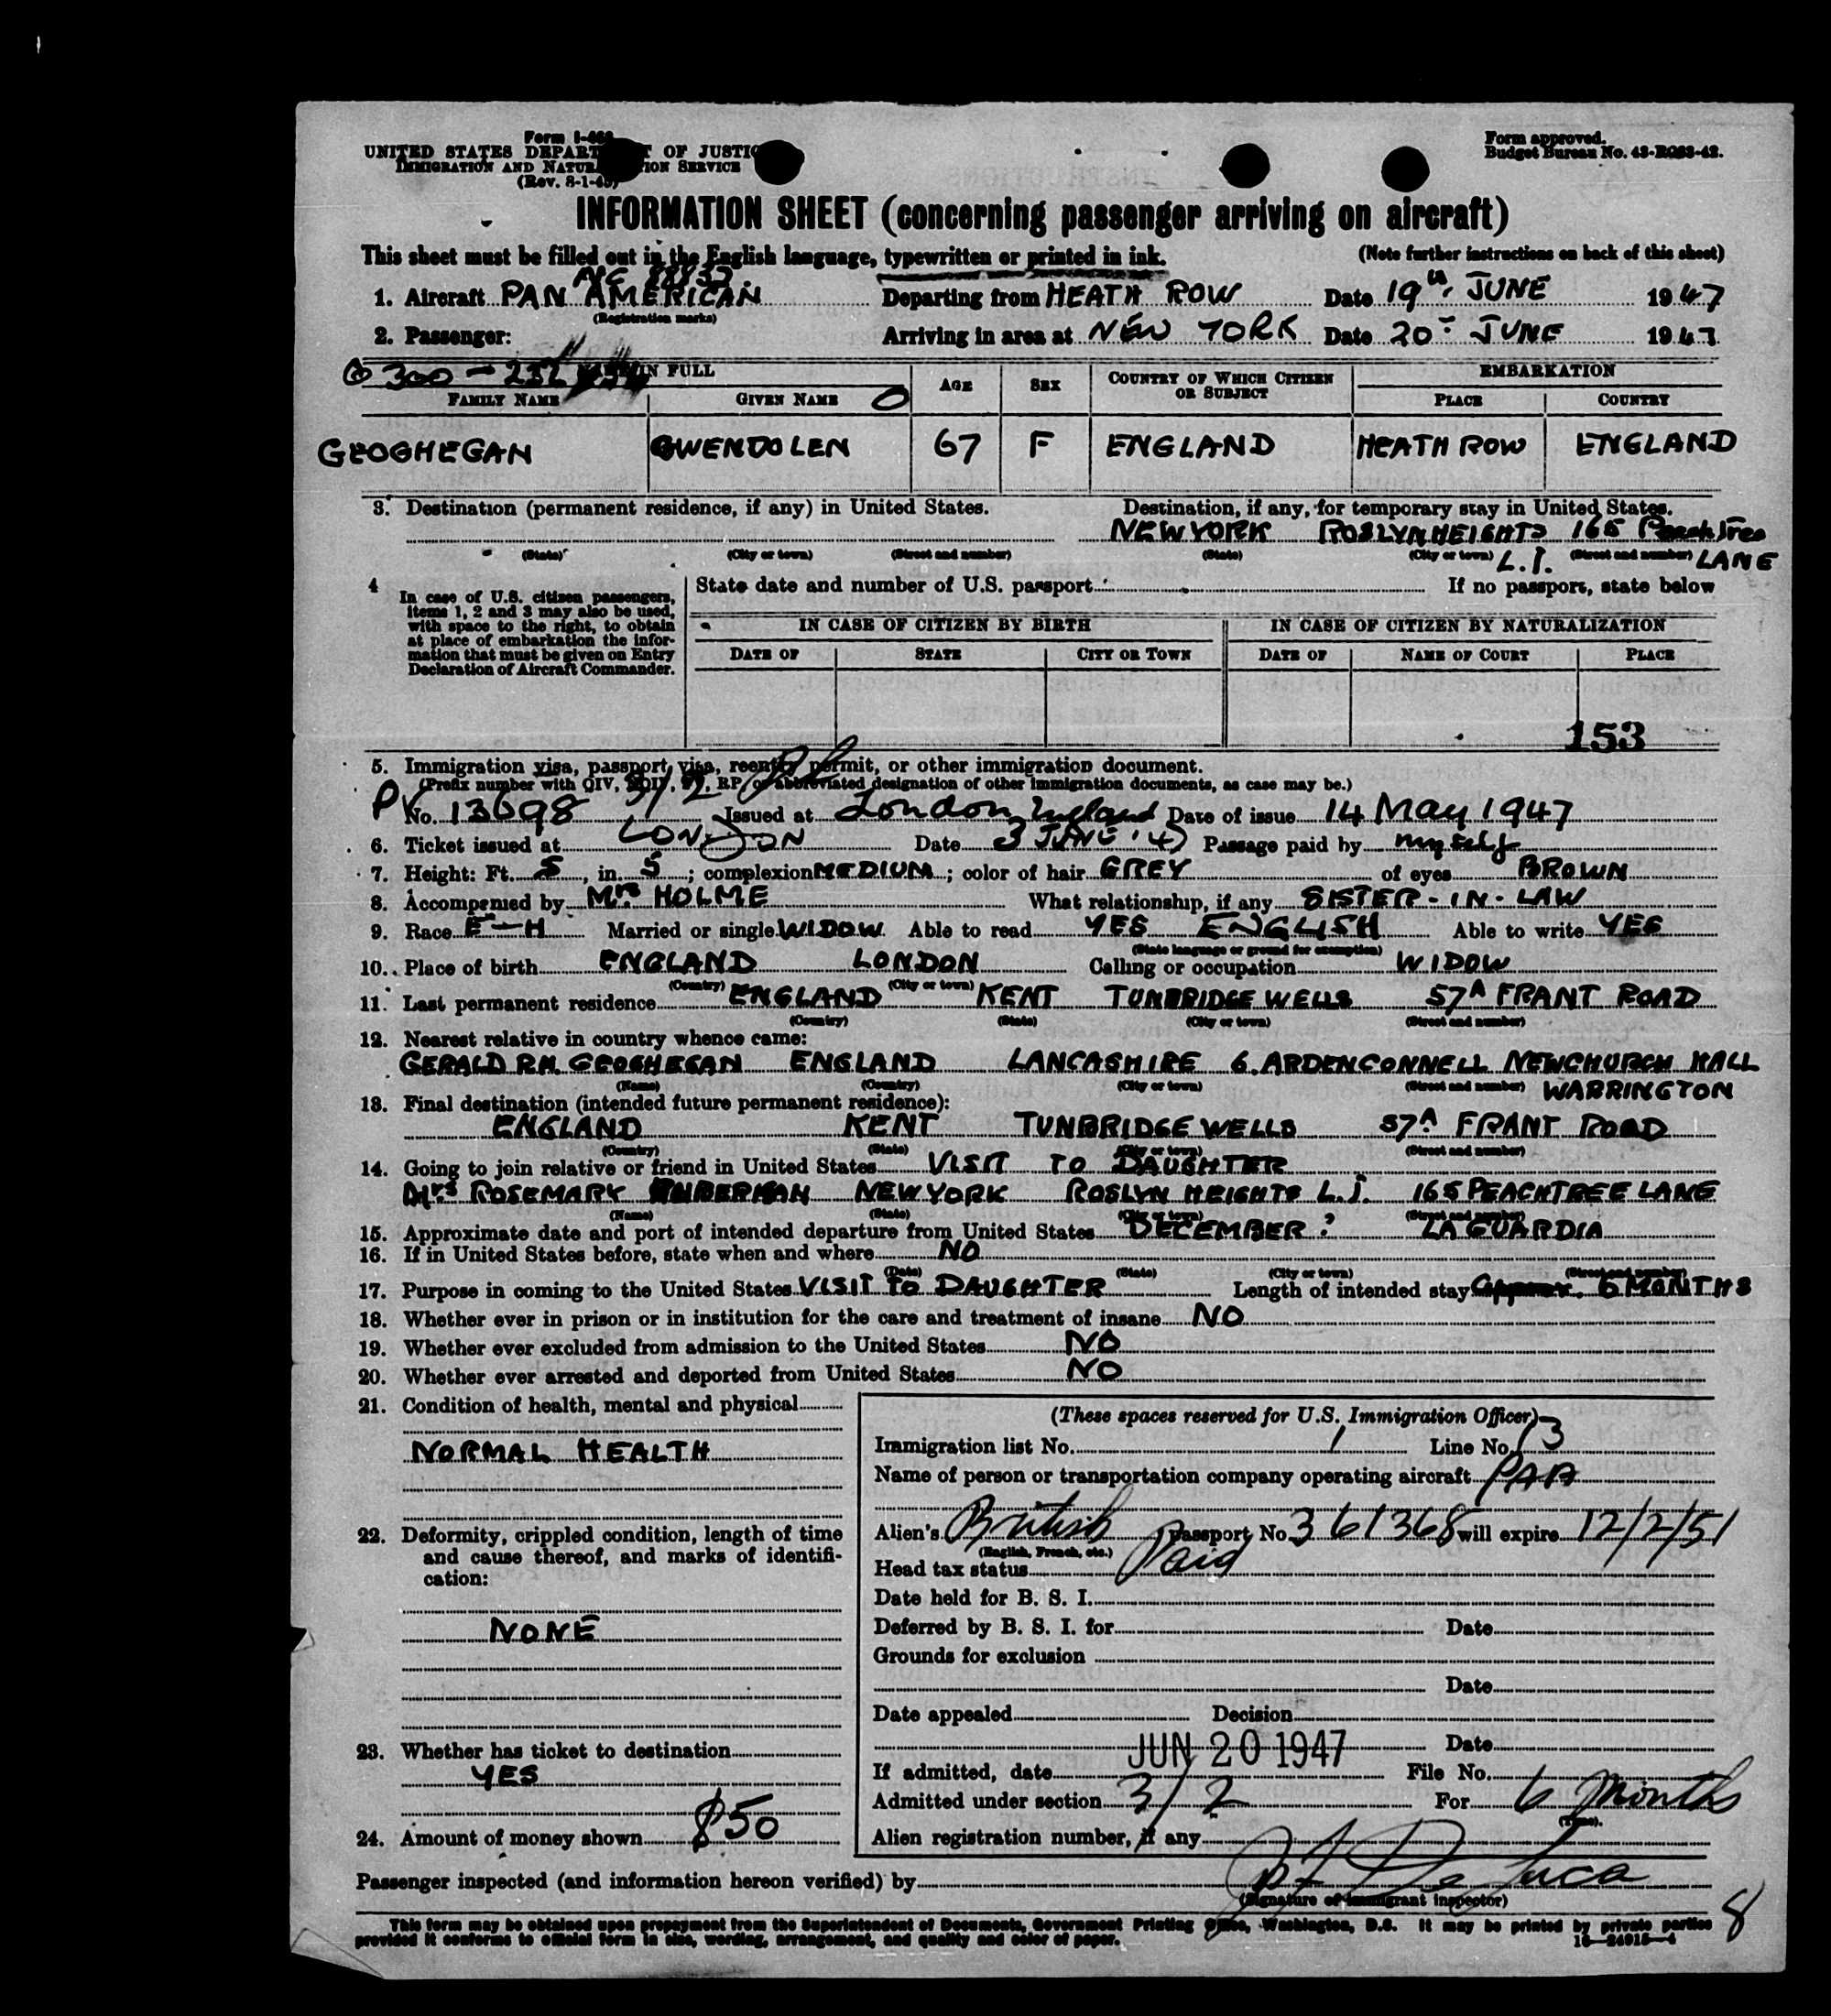 Form I-466
UNITED STATES DEPARTMENT OF JUSTICE
IMMIGRATION AND NATURALIZATION SERVICE
(Rev. 8-1-45)
Form approved.
Budget Bureau No.
INFORMATION SHEET (concerning passenger arriving on aircraft)
This sheet must be filled out in the English language, typewritten or printed in ink. (Note further instructions on back of this sheet)
NC 88832
1. Aircraft PAN AMERICAN Departing from HEATH ROW Date 19th JUNE 1947
(Registration marks)
2. Passenger: Arriving in area at NEW YORK Date 20 JUNE 1947
NAME IN FULL AGE SEX COUNTRY OF WHICH CITIZEN OR SUBJECT EMBARKATION
FAMILY NAME GIVEN NAME PLACE COUNTRY
GEOGHEGAN GWENDOLEN 67 F ENGLAND HEATH ROW ENGLAND
3. Destination (permanent residence, if any) in United States. Destination, if any, for temporary stay in United States.
NEW YORK ROSLYN HEIGHTS 165 Peach Tree
(State) (City or town) (Street and number) (State) (City or town) L.I. (Street and number) LANE
4 State date and number of U.S. passport If no passport, state below
In case of U.S. citizen passengers,
items 1, 2 and 3 may also be used,
with space to the right, to obtain
at place of embarkation the infor-
mation that must be given on Entry
Declaration of Aircraft Commander.
IN CASE OF CITIZEN BY BIRTH IN CASE OF CITIZEN BY NATURALIZATION
DATE OF STATE CITY OR TOWN DATE OF NAME OF COURT PLACE
153
5. Immigration visa, passport visa, reentry permit, or other immigration document.
(Prefix number with QIV, NQIV, PV, RP, or abbreviated designation of other immigration documents, as case may be.)
3/2
PV No. 13698 Issued at London England Date of issue 14 May 1947
6. Ticket issued at LONDON Date 3 JUNE '47 Passage paid by myself
7. Height: Ft. 5, in. 5; complexion MEDIUM; color of hair GREY of eyes BROWN
8. Accompanied by Mrs HOLME What relationship, if any SISTER-IN-LAW
9. Race E—H Married or single WIDOW Able to read YES ENGLISH Able to write YES
(State language or ground for exemption)
10. Place of birth ENGLAND LONDON Calling or occupation WIDOW
(Country) (City or town)
11. Last permanent residence ENGLAND KENT TUNBRIDGE WELLS 57A FRANT ROAD
(Country) (State) (City or town) (Street and number)
12. Nearest relative in country whence came:
GERALD R.M. GEOGHEGAN ENGLAND LANCASHIRE 6. ARDENCONNELL NEWCHURCH HALL
(Name) (Country) (City or town) (Street and number) WARRINGTON
13. Final destination (intended future permanent residence):
ENGLAND KENT TUNBRIDGE WELLS 57A FRANT ROAD
(Country) (State) (City or town) (Street and number)
14. Going to join relative or friend in United States VISIT TO DAUGHTER
Mrs ROSEMARY NEW YORK ROSLYN HEIGHTS L.I. 165 PEACHTREE LANE
(Name) (State) (City or town) (Street and number)
15. Approximate date and port of intended departure from United States DECEMBER? LA GUARDIA
16. If in United States before, state when and where NO
(Date) (State) (City or town) (Street and number)
17. Purpose in coming to the United States VISIT TO DAUGHTER Length of intended stay approx. 6 MONTHS
18. Whether ever in prison or in institution for the care and treatment of insane NO
19. Whether ever excluded from admission to the United States NO
20. Whether ever arrested and deported from United States NO
21. Condition of health, mental and physical
NORMAL HEALTH
22. Deformity, crippled condition, length of time
and cause thereof, and marks of identifi-
cation:
NONE
23. Whether has ticket to destination
YES
24. Amount of money shown $50
(These spaces reserved for U.S. Immigration Officer)
Immigration list No. 1 Line No. 13
Name of person or transportation company operating aircraft PAA
Alien's British Passport No 361368 will expire 12/2/51
(English, French, etc.)
Head tax status Paid
Date held for B. S. I.
Deferred by B. S. I. for Date
Grounds for exclusion
Date
Date appealed Decision
Date
JUN 20 1947
If admitted, date File No.
Admitted under section 3/2 For 6 Months
(Time).
Alien registration number, if any
Passenger inspected (and information hereon verified) by De Luca
(Signature of immigrant inspector)
8
This form may be obtained upon prepayment from the Superintendent of Documents, Government Printing Office, Washington, D.C. It may be printed by private parties
provided it conforms to official form in size, wording, arrangement, and quality and color of paper.